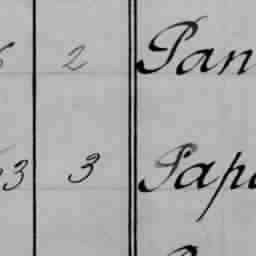 2 Pan
3 3 Papa